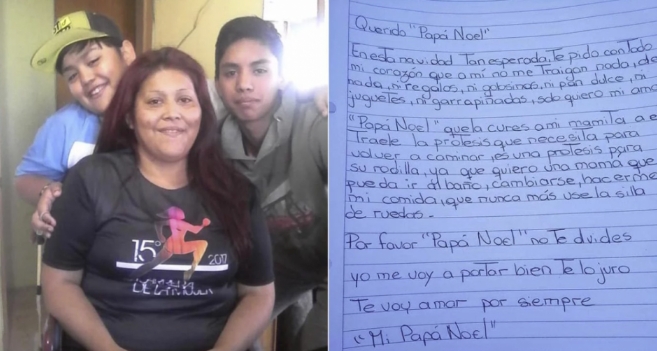 15°
2017
Querido "Papá Noel"
En esta navidad Tan esperada, Te pido con Todo
mi corazón que a mí no me Traigan nada, de
nada, ni regalos, ni golosinas, ni pan dulce, ni
juguetes, ni garrapiñadas, solo quiero mi
"Papá Noel" que la cures a mi mamita
Traele la protesis que necesita para
volver a caminar, es una protesis para
su rodilla, ya que quiero una mamá que
pueda ir al baño, cambiarse, hacerme
mi comida, que nunca más use la silla
de ruedas.
Por favor "Papá Noel" no Te olvides
yo me voy a portar bien Te lo juro
Te voy amar por siempre
"Mi Papá Noel"